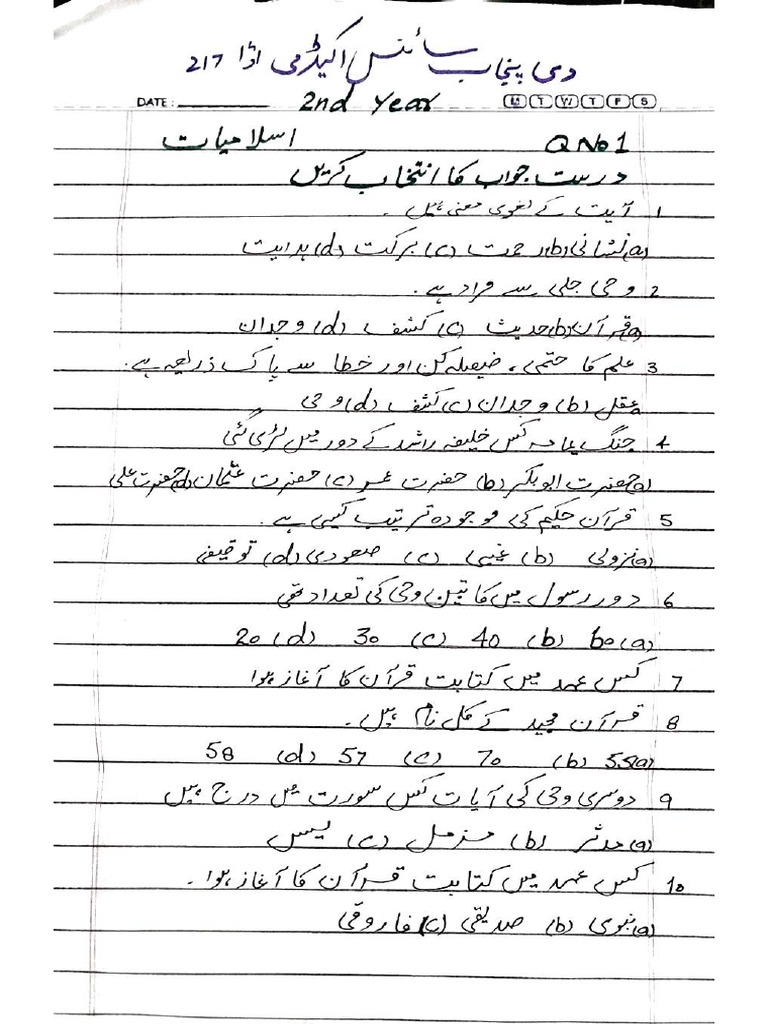 دی پنجاب سائنس اکیڈمی اڈا 217
DATE: 2nd Year M T W T F S
اسلامیات Q No 1
درست جواب کا انتخاب کریں
1 آیت کے لغوی معنی ہیں ۔
(a) نشانی (b) رحمت (c) برکت (d) ہدایت
2 وحی جلی سے مراد ہے ۔
(a) قرآن (b) حدیث (c) کشف (d) وجدان
3 علم کا حتمی ، فیصلہ کن اور خطا سے پاک ذریعہ ہے ۔
a عقل (b) وجدان (c) کشف (d) وحی
4 جنگ یمامہ کس خلیفہ راشد کے دور میں لڑی گئی
(a) حضرت ابوبکر (b) حضرت عمر (c) حضرت عثمان (d) حضرت علی
5 قرآن حکیم کی موجودہ ترتیب کیسی ہے ۔
(a) نزولی (b) غیبی (c) صعودی (d) توقیفی
6 دور رسول میں کاتبین وحی کی تعداد تھی
(a) 60 (b) 40 (c) 30 (d) 20
7 کس عہد میں کتابت قرآن کا آغاز ہوا
8 قرآن مجید کے کل نام ہیں ۔
(a) 55 (b) 70 (c) 57 (d) 58
9 دوسری وحی کی آیات کس سورت میں درج ہیں
(a) مدثر (b) مزمل (c) یسین
10 کس عہد میں کتابت قرآن کا آغاز ہوا ۔
(a) نبوی (b) صدیقی (c) فاروقی